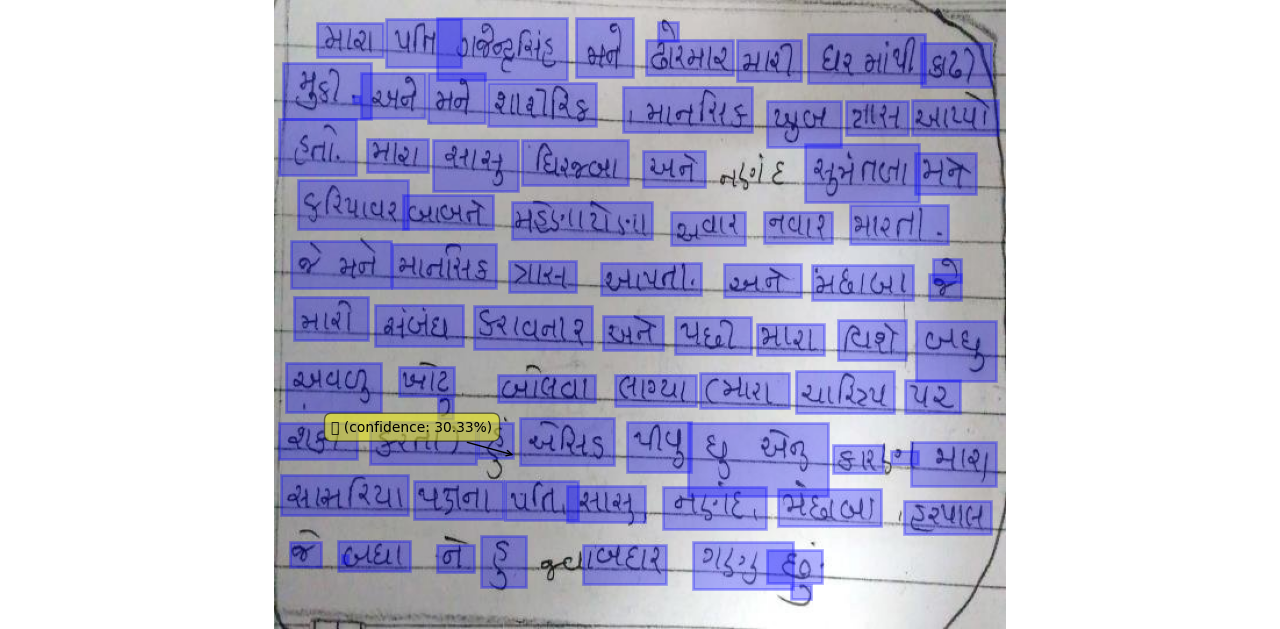 મારા પતિ ગજેન્દ્રસિંહ મને ઢોરમાર મારી ઘર માંથી કાઢી
મુકી. અને મને શારીરિક, માનસિક ખુબ ત્રાસ આપ્યો
હતો. મારા સાસુ ધિરજબા અને નણંદ સુમંતબા મને
કરિયાવર બાબતે મહેણાટોણા અવાર નવાર મારતા.
જે મને માનસિક ત્રાસ આપતા. અને મંછાબા જે
મારો સંબંધ કરાવનાર અને પછી મારા વિશે બધુ
અવળુ ખોટુ બોલવા લાગ્યા (મારા ચારિત્ર્ય પર
શંકા કરતા) હું એસિડ પીવુ છુ એનુ કારણ મારા
સાસરિયા પક્ષના પતિ, સાસુ, નણંદ, મંછાબા, હરપાલ
જે બધા ને હુ જવાબદાર ગણુ છું
(confidence: 30.33%)